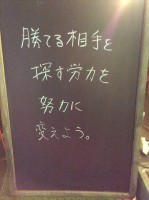 勝てる相手を
探す労力を
努力に
変えよう。